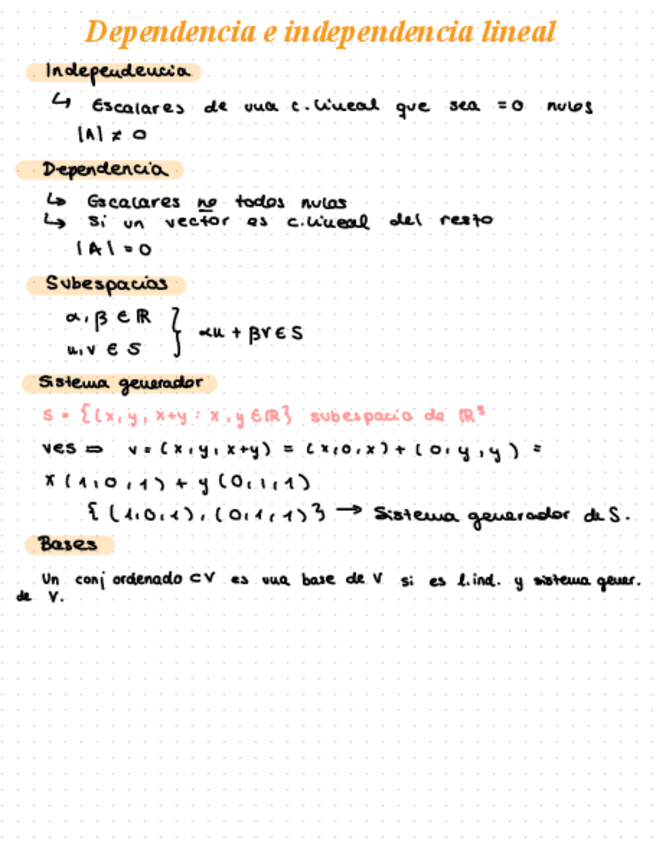 Dependencia e independencia lineal
Independencia
↳ Escalares de una c. lineal que sea =0 nulos
|A| ≠ 0
Dependencia
↳ Escalares no todos nulos
↳ Si un vector es c.lineal del resto
|A| = 0
Subespacios
α, β ∈ ℝ
u, v ∈ S } αu + βv ∈ S
Sistema generador
S = {(x, y, x+y : x, y ∈ ℝ} subespacio de ℝ³
v∈S ⇒ v = (x, y, x+y) = (x,0,x) + (0, y, y) =
x(1,0,1) + y(0,1,1)
{(1,0,1), (0,1,1)} → Sistema generador de S.
Bases
Un conj ordenado ⊂V es una base de V si es l.ind. y sistema gener.
de V.